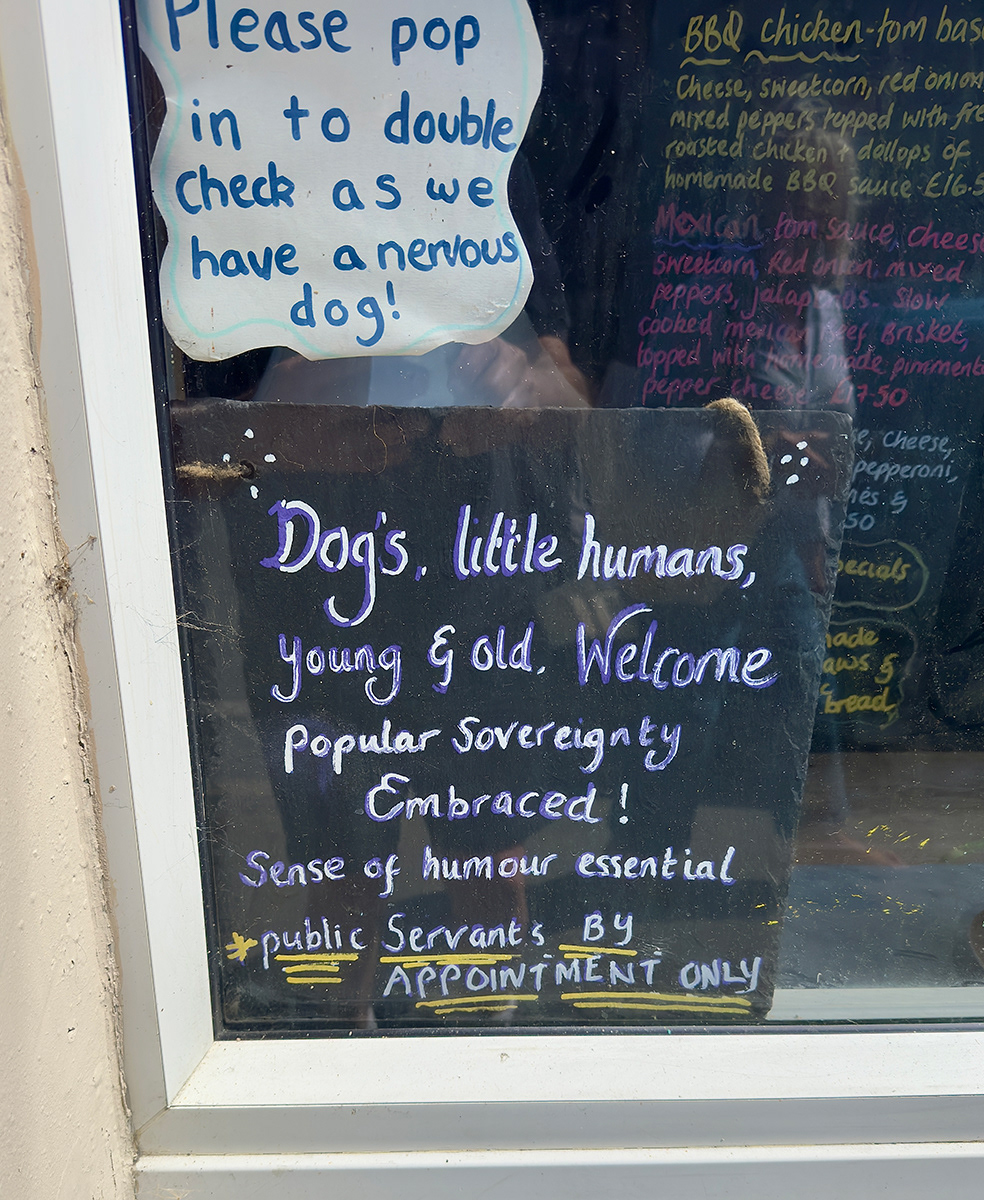 Please pop
in to double
check as we
have a nervous
dog!
BBQ chicken - tom
Cheese, sweetcorn, red onion
mixed peppers topped with
roasted chicken + dollops of
homemade BBQ sauce
Mexican tom sauce, cheese
sweetcorn, Red onion, mixed
peppers, jalapenos. Slow
cooked mexican beef Brisket,
topped with homemade
pepper cheese £17.50
cheese,
pepperoni,
&
50
&
bread
Dog's, little humans,
young & old. Welcome
Popular Sovereignty
Embraced!
Sense of humour essential
*public Servants BY
APPOINTMENT ONLY